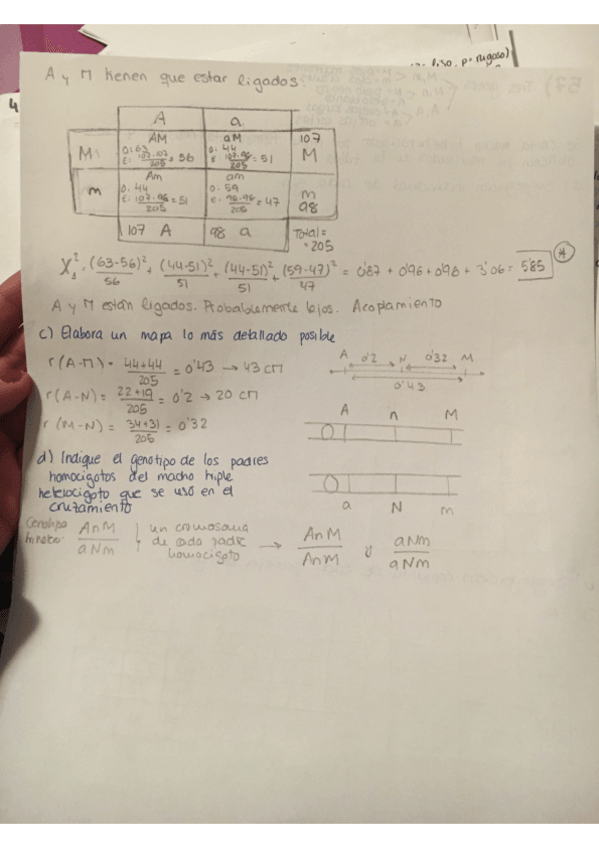 liso, p = rugoso)
A y M tienen que estar ligados.
A a
M AM aM 107
O: 63 O: 44 M
E: 107·107/205 = 56 E: 107·98/205 = 51
m Am am m
O: 44 O: 59 98
E: 107·98/205 = 51 E: 98·98/205 = 47
107 A 98 a Total = 205
X₁²: (63-56)²/56 + (44-51)²/51 + (44-51)²/51 + (59-47)²/47 = 0'87 + 0'96 + 0'96 + 3'06 = 5'85
A y M están ligados. Probablemente lejos. Acoplamiento
c) Elabora un mapa lo más detallado posible
r (A-M) = 44+44/205 = 0'43 → 43 cM
A 0'2 N 0'32 M
0'43
r (A-N) = 22+19/205 = 0'2 → 20 cM
r (M-N) = 34+31/205 = 0'32
A n M
d) Indique el genotipo de los padres
homocigotos del macho triple
heterocigoto que se usó en el
cruzamiento
a N m
Genotipo AnM/aNm un cromosoma de cada padre homocigoto → AnM/AnM y aNm/aNm